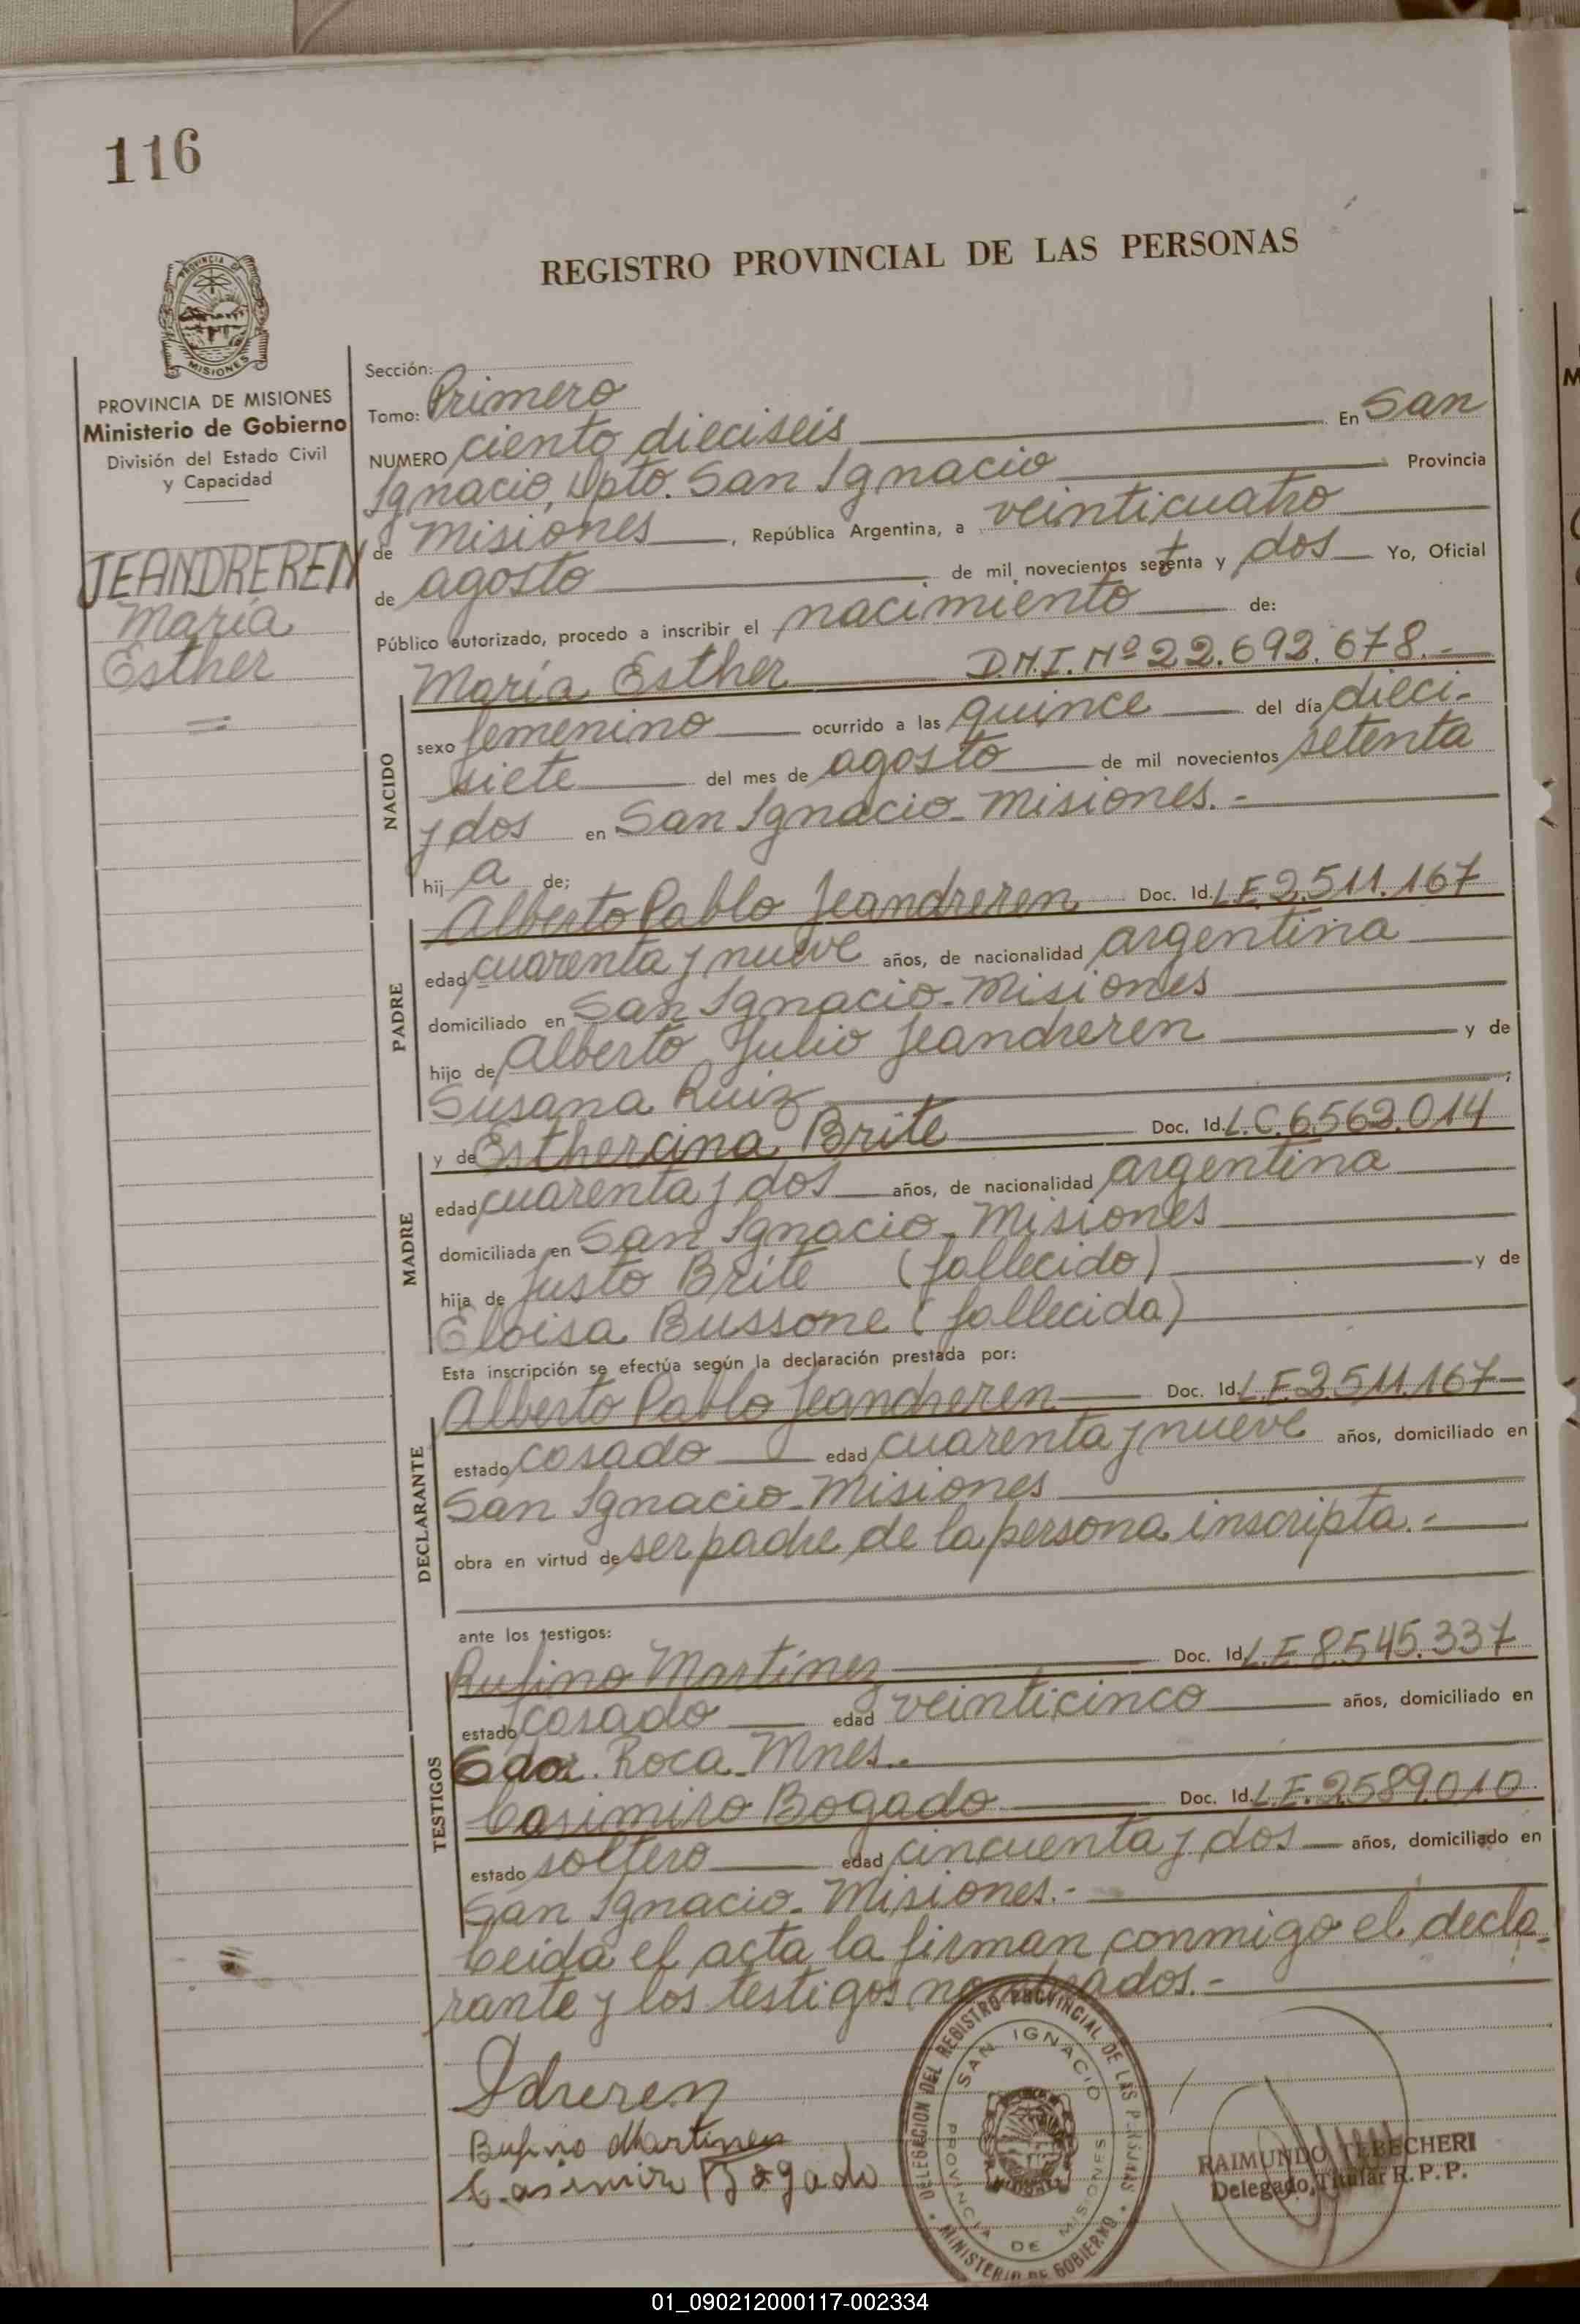 116
REGISTRO PROVINCIAL DE LAS PERSONAS
PROVINCIA DE MISIONES
PROVINCIA DE MISIONES
Ministerio de Gobierno
División del Estado Civil
y Capacidad
JEANDREREN
María
Esther
Sección:
Tomo: Primero
NUMERO ciento dieciseis En San
Ignacio, Dpto. San Ignacio Provincia
de Misiones, República Argentina, a veinticuatro
de agosto de mil novecientos setenta y dos Yo, Oficial
Público autorizado, procedo a inscribir el nacimiento de:
María Esther D.N.I. Nº 22.692.678.-
NACIDO
sexo femenino ocurrido a las quince del día dieci-
siete del mes de agosto de mil novecientos setenta
y dos en San Ignacio - Misiones.-
hij a de;
PADRE
Alberto Pablo Jeandreren Doc. Id. L.E. 2.511.167
edad cuarenta y nueve años, de nacionalidad argentina
domiciliado en San Ignacio - Misiones
hijo de Alberto Julio Jeandreren y de
Susana Ruiz ;
MADRE
y de Esthercina Brite Doc. Id. L.C. 6.562.014
edad cuarenta y dos años, de nacionalidad argentina
domiciliada en San Ignacio - Misiones
hija de Justo Brite (fallecido) y de
Eloisa Bussone (fallecida)
Esta inscripción se efectúa según la declaración prestada por:
DECLARANTE
Alberto Pablo Jeandreren Doc. Id. L.E. 2.511.167
estado casado edad cuarenta y nueve años, domiciliado en
San Ignacio - Misiones
obra en virtud de ser padre de la persona inscripta.-
ante los testigos:
TESTIGOS
Rufino Martínez Doc. Id. L.E. 8.545.337
estado casado edad veinticinco años, domiciliado en
Gdor. Roca - Mnes.-
Casimiro Bogado Doc. Id. L.E. 2.589.010
estado soltero edad cincuenta y dos años, domiciliado en
San Ignacio - Misiones.-
Leida el acta la firman conmigo el decla-
rante y los testigos nombrados.-
Rufino Martinez
Casimiro Bogado
DELEGACION DEL REGISTRO PROVINCIAL DE LAS PERSONAS
SAN IGNACIO
PROVINCIA DE MISIONES
MINISTERIO DE GOBIERNO
RAIMUNDO TEBECHERI
Delegado Titular R. P. P.
01_090212000117-002334